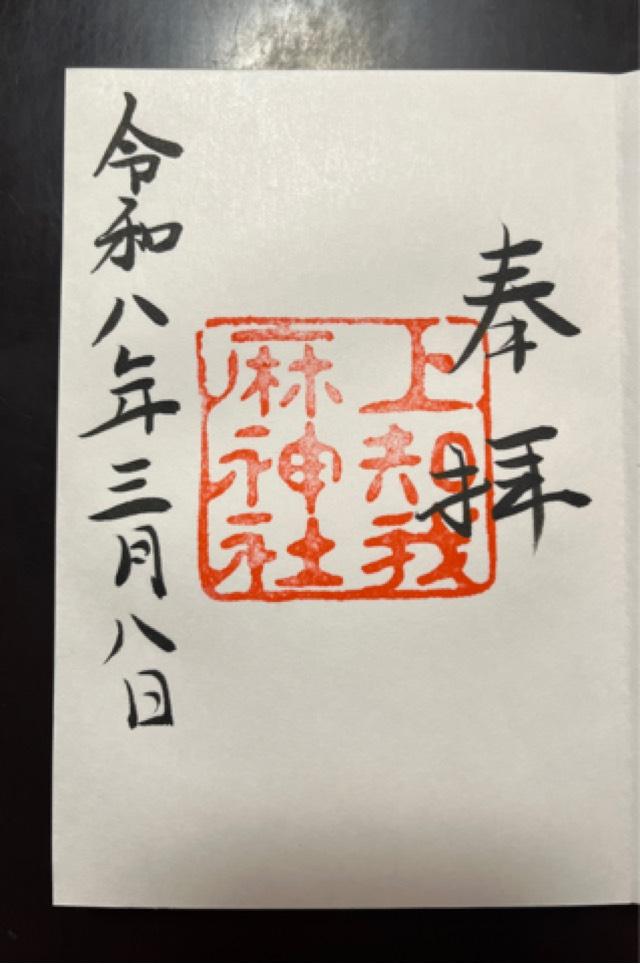 奉拝
上知我
麻神社
令和八年三月八日